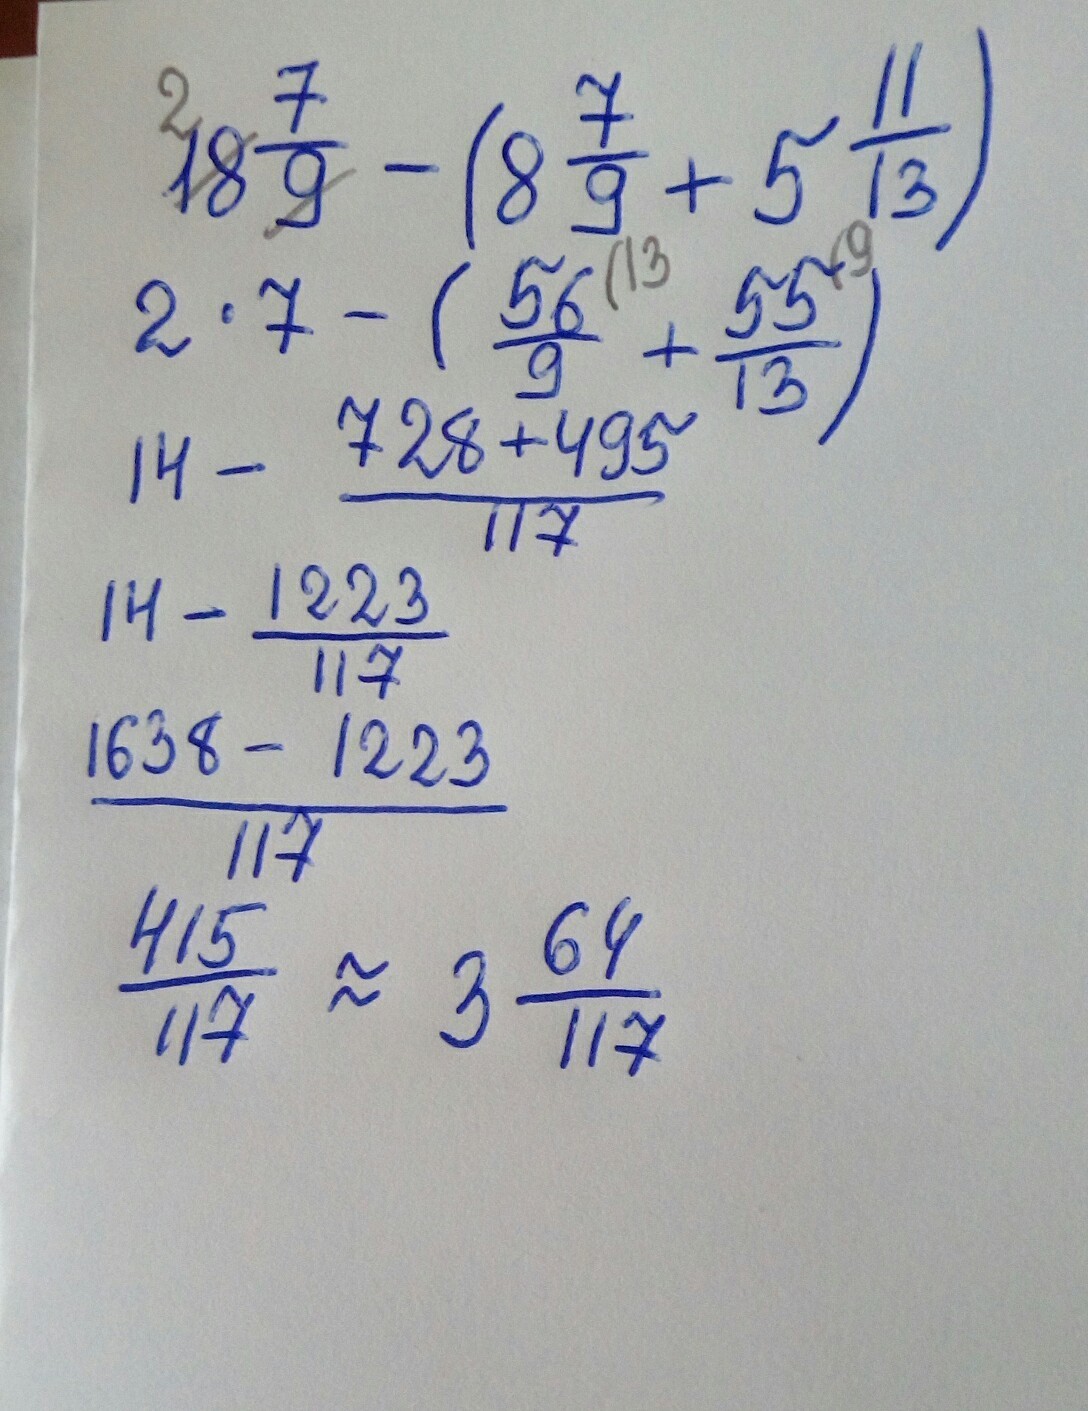 2 18 7/9 - (8 7/9 + 5 11/13)
2 · 7 - (56/9 (13 + 55/13 (9)
14 - 728+495/117
14 - 1223/117
1638 - 1223/117
415/117 ≈ 3 64/117